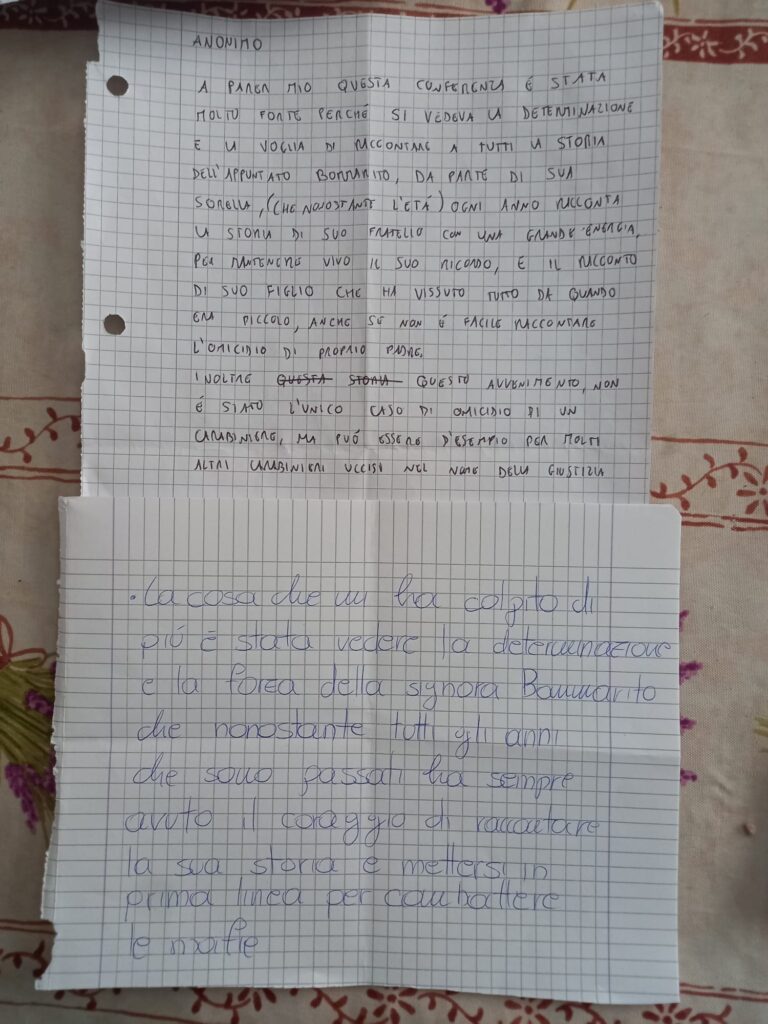 ANONIMO
A PARER MIO QUESTA CONFERENZA É STATA
MOLTO FORTE PERCHÉ SI VEDEVA LA DETERMINAZIONE
E LA VOGLIA DI RACCONTARE A TUTTI LA STORIA
DELL'APPUNTATO BOMMARITO, DA PARTE DI SUA
SORELLA, (CHE NONOSTANTE L'ETÁ) OGNI ANNO RACCONTA
LA STORIA DI SUO FRATELLO CON UNA GRANDE ENERGIA,
PER MANTENERE VIVO IL SUO RICORDO, E IL RACCONTO
DI SUO FIGLIO CHE HA VISSUTO TUTTO DA QUANDO
ERA PICCOLO, ANCHE SE NON É FACILE RACCONTARE
L'OMICIDIO DI PROPRIO PADRE.
INOLTRE QUESTA STORIA QUESTO AVVENIMENTO, NON
É STATO L'UNICO CASO DI OMICIDIO DI UN
CARABINIERE, MA PUÓ ESSERE D'ESEMPIO PER MOLTI
ALTRI CARABINIERI UCCISI NEL NOME DELLA GIUSTIZIA
• La cosa che mi ha colpito di
piú é stata vedere la determinazione
e la forza della signora Bommarito
che nonostante tutti gli anni
che sono passati ha sempre
avuto il coraggio di raccontare
la sua storia e mettersi in
prima linea per combattere
le mafie